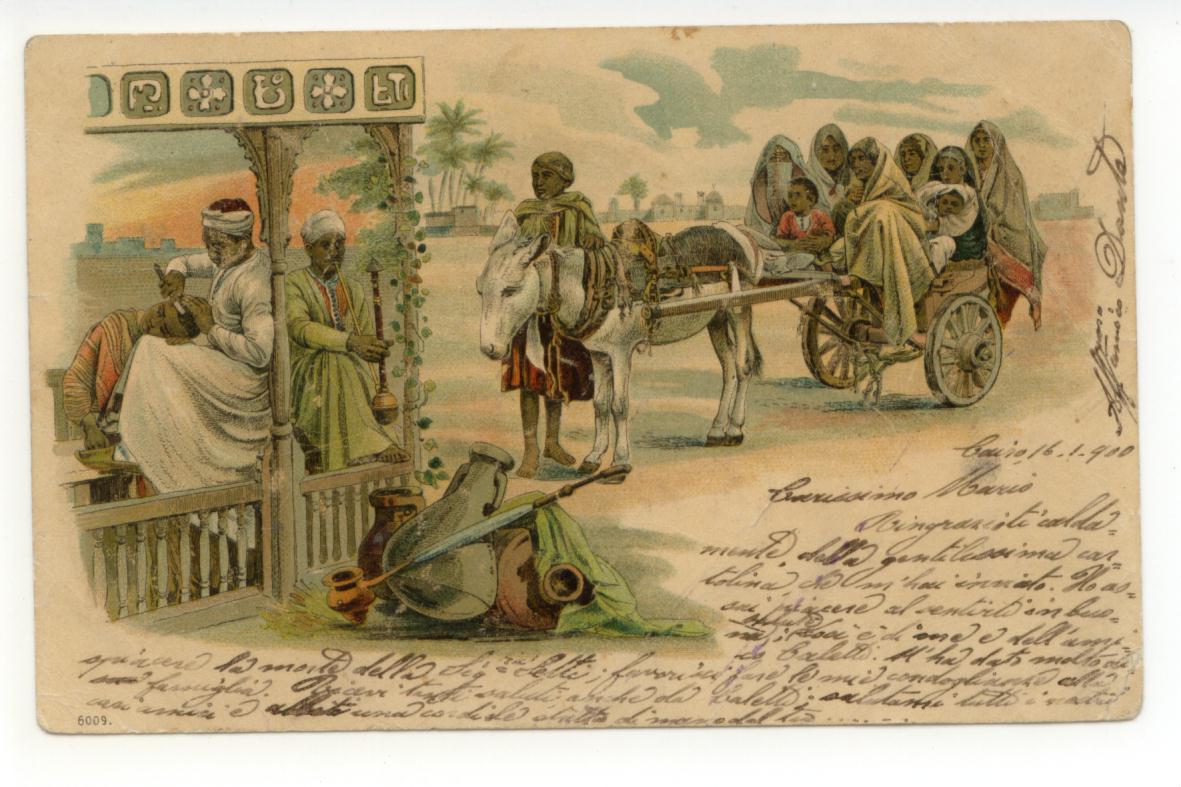 Cairo, 16.-1-900
Carissimo Mario
Ringrazioti calda-
mente della gentilissima car-
tolina che m'hai inviato. Ho as-
sai piacere al sentirti in buo-
na salute; così è di me e dell'ami-
co Caletti. M'ha dato molto di-
spiacere la morte della Sig.ra Setti; favorisci fare le mie condoglianze alla
sua famiglia. Ricevi tanti saluti anche da Caletti; salutami tutti i nostri
cari amici e abbiti una cordiale stretta di mano dal tuo
Affmo Amico Dante
6009.